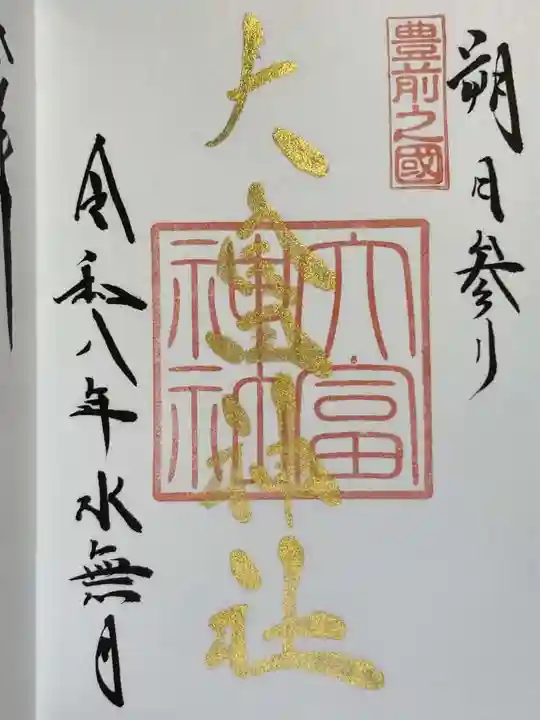 朔日参り
豊前之國
大富神社
大富神社
令和八年水無月